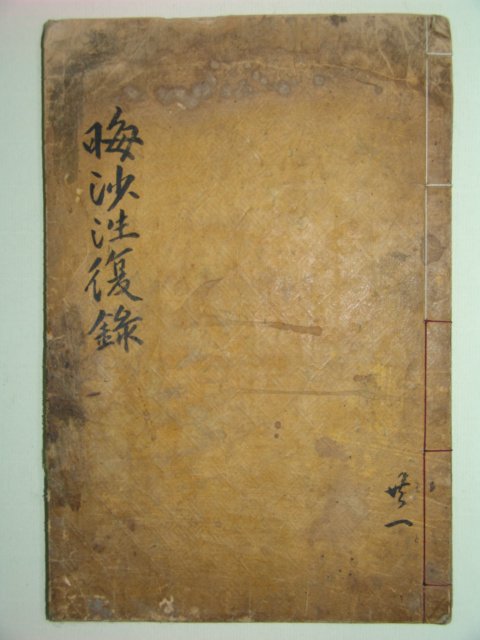 晦沙往復錄
共一